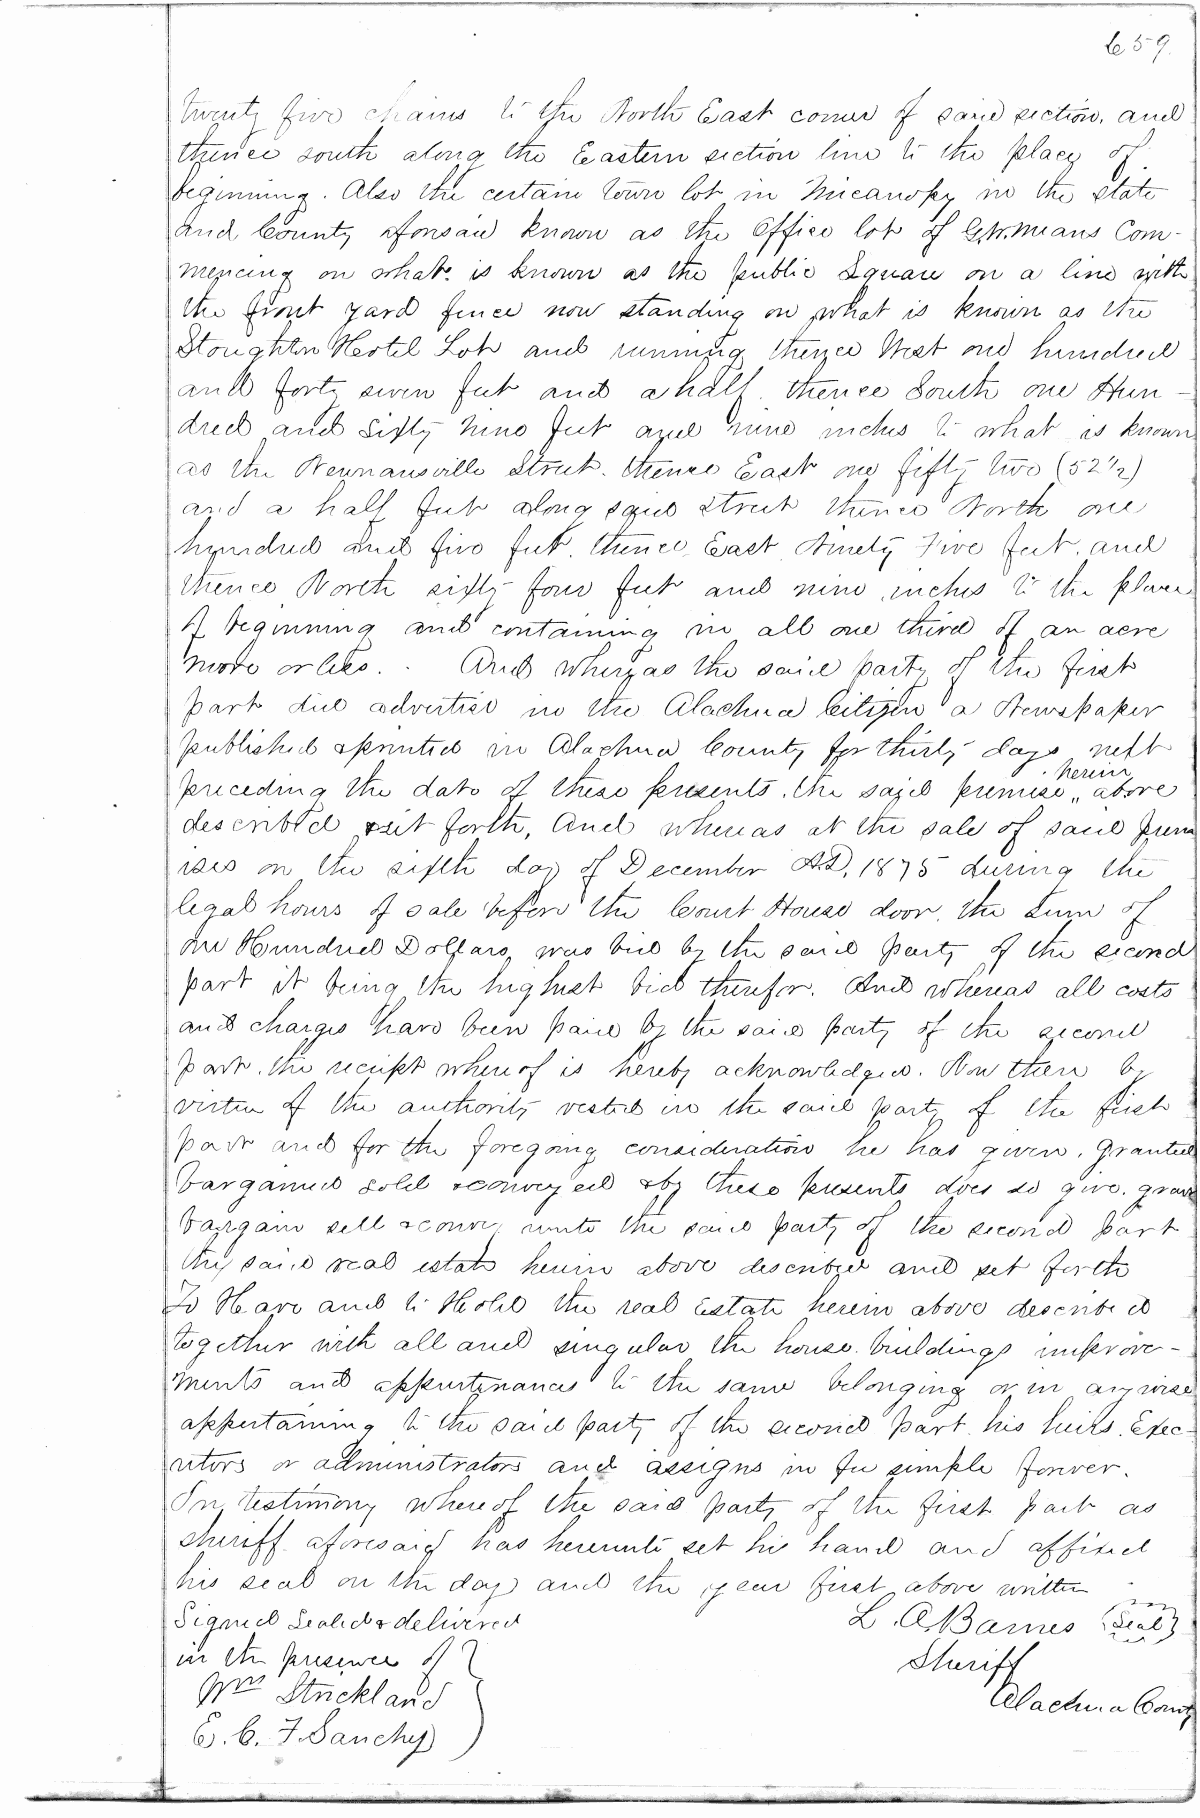 659.
twenty five chains to the North East corner of said section, and
thence south along the Eastern section line to the place of
beginning. Also the certain town lot in Micanopy in the state
and County aforsaid known as the Office lot of G.W. Means Com-
mencing on what is known as the public Square on a line with
the front yard fence now standing on what is known as the
Stoughton Hotel Lot and running thence West one hundred
and forty seven feet and a half. thence South one Hun-
dred and Sixty Nine feet and nine inches to what is known
as the Newnansville Street. thence East one fifty two (52 1/2)
and a half feet along said street thence North one
hundred and five feet. thence East Ninety Five feet. and
thence North sixty four feet and nine inches to the place
of beginning and containing in all one third of an acre
more or less. And whereas the said party of the first
part did advertise in the Alachua Citizen a Newspaper
published & printed in Alachua County for thirty days next
preceding the date of these presents, the said premise " herein above
described & set forth, And whereas at the sale of said prem
ises on the sixth day of December A.D. 1875 during the
legal hours of sale before the Court House door, the sum of
one Hundred Dollars was bid by the said party of the second
part it being the highest bid therefor. And whereas all costs
and charges have been paid by the said party of the second
part. the receipt whereof is hereby acknowledged. Now then by
virtue of the authority vested in the said party of the first
part and for the foregoing consideration he has given, granted
bargained sold & conveyed & by these presents does so give. grant
bargain sell & convey unto the said party of the second part
the said real estate herein above described and set forth
To Have and to Hold the real Estate herein above described
together with all and singular the house. buildings improve-
ments and appurtenances to the same belonging or in anywise
appertaining to the said party of the second part his heirs. Exec-
utors or administrators and assigns in fee simple forever.
In testimony whereof the said party of the first part as
sheriff aforesaid has hereunto set his hand and affixed
his seal on the day and the year first above written
Signed Sealed & delivered L. A. Barnes (Seal)
in the presence of Sheriff
Wms Strickland Alachua County
E. C. F. Sanchez